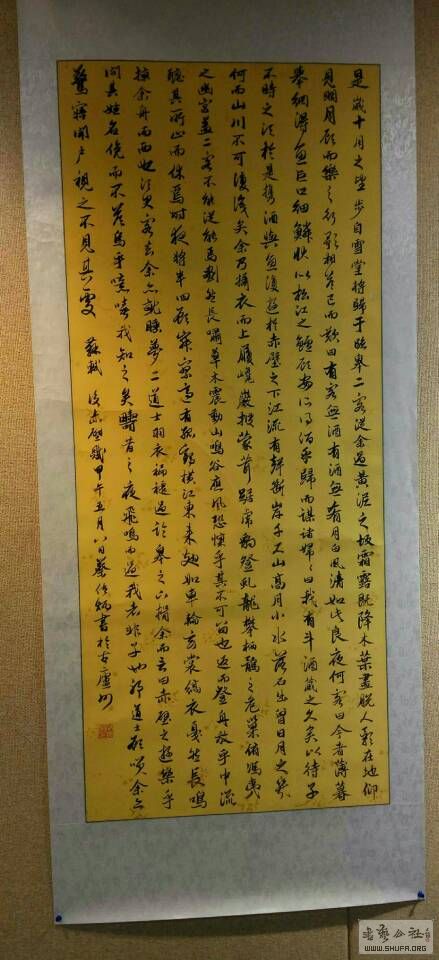 是歲十月之望步自雪堂將歸于臨皋二客從余過黃泥之坂霜露既降木葉盡脫人影在地仰
見明月顧而樂之行歌相答已而歎曰有客無酒有酒無肴月白風清如此良夜何客曰今者薄暮
舉網得魚巨口細鱗狀似松江之鱸顧安所得酒乎歸而謀諸婦婦曰我有斗酒藏之久矣以待子
不時之須於是攜酒與魚復遊於赤壁之下江流有聲斷岸千尺山高月小水落石出曾日月之幾
何而山川不可復識矣余乃攝衣而上履巉巖披蒙茸踞虎豹登虬龍攀栖鶻之危巢俯馮夷
之幽宮蓋二客不能從能焉劃然長嘯草木震動山鳴谷應風恐懍乎其不可留也返而登舟放乎中流
聽其所止而休焉時夜將半四顧寂寥適有孤鶴橫江東來翅如車輪玄裳縞衣戛然長鳴
掠余舟而西也須臾客去余亦就睡夢二道士羽衣蹁躚過臨皋之下揖余而言曰赤壁之遊樂乎
問其姓名俛而不答烏乎噫嘻我知之矣疇昔之夜飛鳴而過我者非子也邪道士顧笑余亦
驚寤開戶視之不見其處 蘇軾 後赤壁賦甲午五月八日蔡炳書於古廬州
書藝公社
WWW.SHUFA.ORG